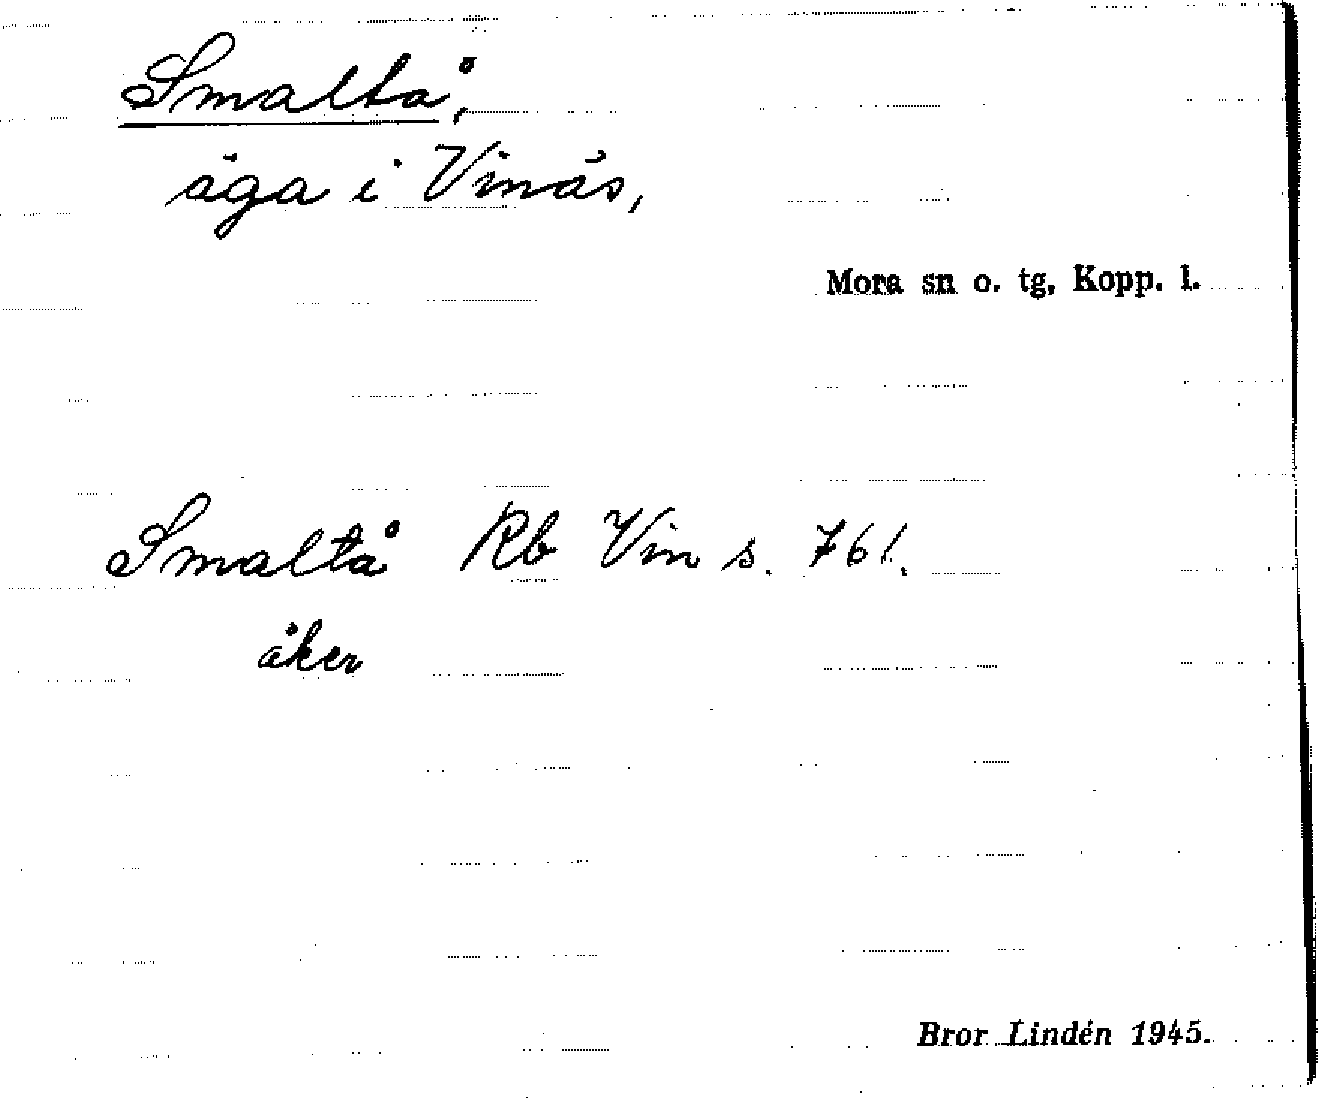 Smaltå,
äga i Vinäs,
Mora sn o. tg, Kopp. l.
Smaltå Rb Vin s. 761.
åker
Bror Lindén 1945.